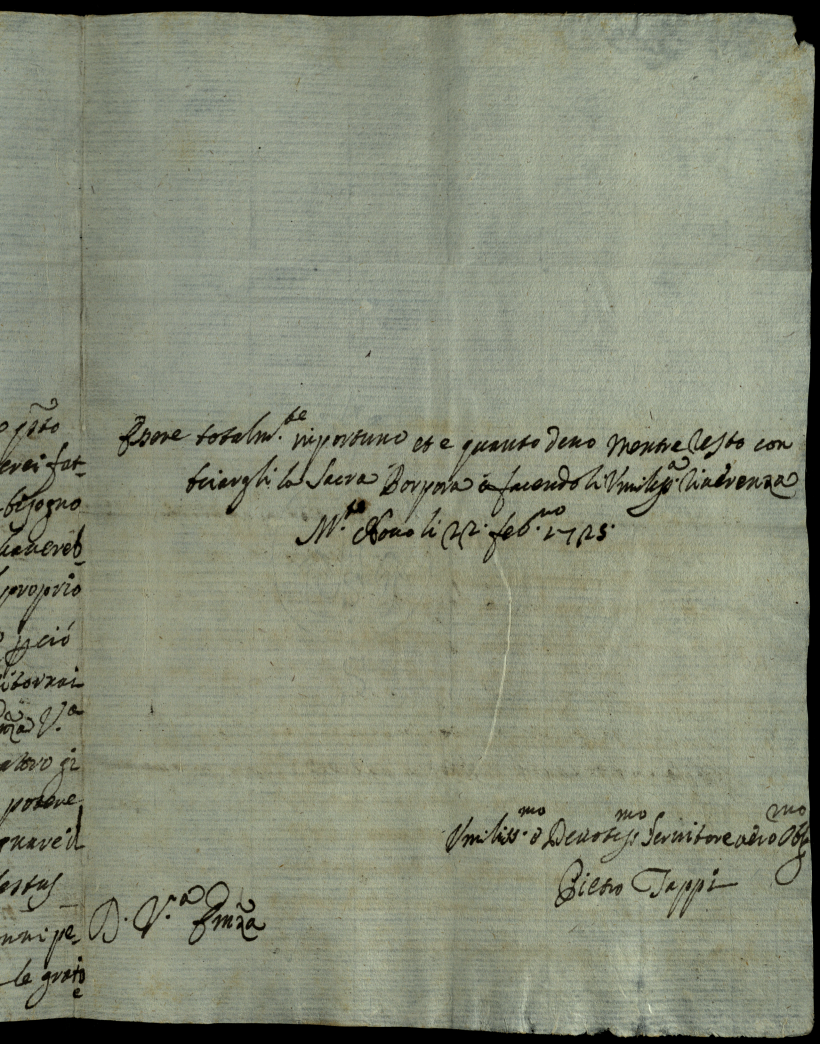 psto
erei fat-
bisogno
havereb-
proprio
pciò
ritornai
V.a
altro gi
potere
gnare il
nni pe-
le grate
Esere totalm.te inportuno et e quanto devo mentre resto con
bciargli la Sacra Porpora facendoli Vmiliss.a riverenza
M.te Novo li 22. feb.ro 1725.
Vmiliss.mo e Devotiss.mo Servitore vero Obb.mo
Pietro Tappi
D. V.a Emza